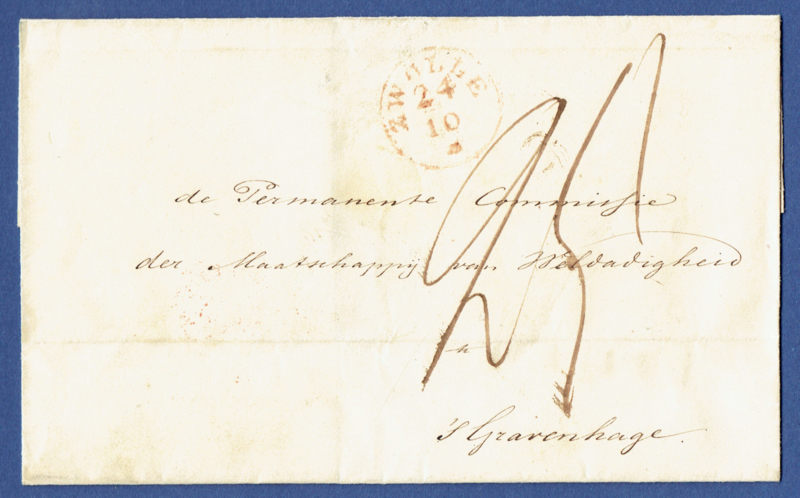 ZWOLLE
24
10
25
de Permanente Commissie
der Maatschappij van Weldadigheid
's Gravenhage.